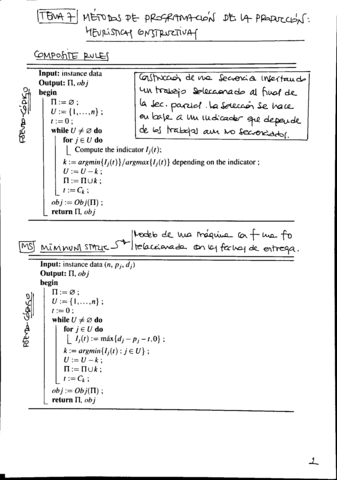 TEMA 7 MÉTODOS DE PROGRAMACIÓN DE LA PRODUCCIÓN:
HEURÍSTICAS CONSTRUCTIVAS
COMPOSITE RULES
PSEUDO-CÓDIGO
Input: instance data
Output: Π, obj
begin
Π := ∅ ;
U := {1,...,n} ;
t := 0 ;
while U ≠ ∅ do
for j ∈ U do
Compute the indicator Ij(t);
k := argmin{Ij(t)}/argmax{Ij(t)} depending on the indicator ;
U := U - k ;
Π := Π ∪ k ;
t := Ck ;
obj := Obj(Π) ;
return Π, obj
Construcción de una secuencia insertando
un trabajo seleccionado al final de
la sec. parcial. La selección se hace
en base a un indicador que depende
de los trabajos aun no secuenciados.
MS MINIMUM STATIC
Modelo de una máquina con una fo
relacionada con las fechas de entrega.
PSEUDO-CÓDIGO
Input: instance data (n, pj, dj)
Output: Π, obj
begin
Π := ∅ ;
U := {1,...,n} ;
t := 0 ;
while U ≠ ∅ do
for j ∈ U do
Ij(t) := máx{dj - pj - t,0} ;
k := argmin{Ij(t) : j ∈ U} ;
U := U - k ;
Π := Π ∪ k ;
t := Ck ;
obj := Obj(Π) ;
return Π, obj
1